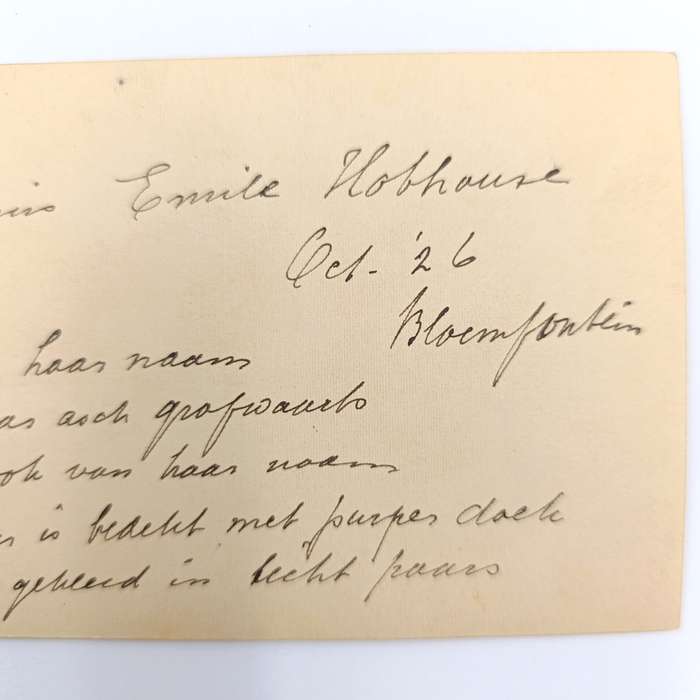 Emile Hobhouse
Oct. '26
Bloemfontein
haar naam
asch grafwaarts
ook van haar naam
is bedekt met purper doek
gekleed in licht paars